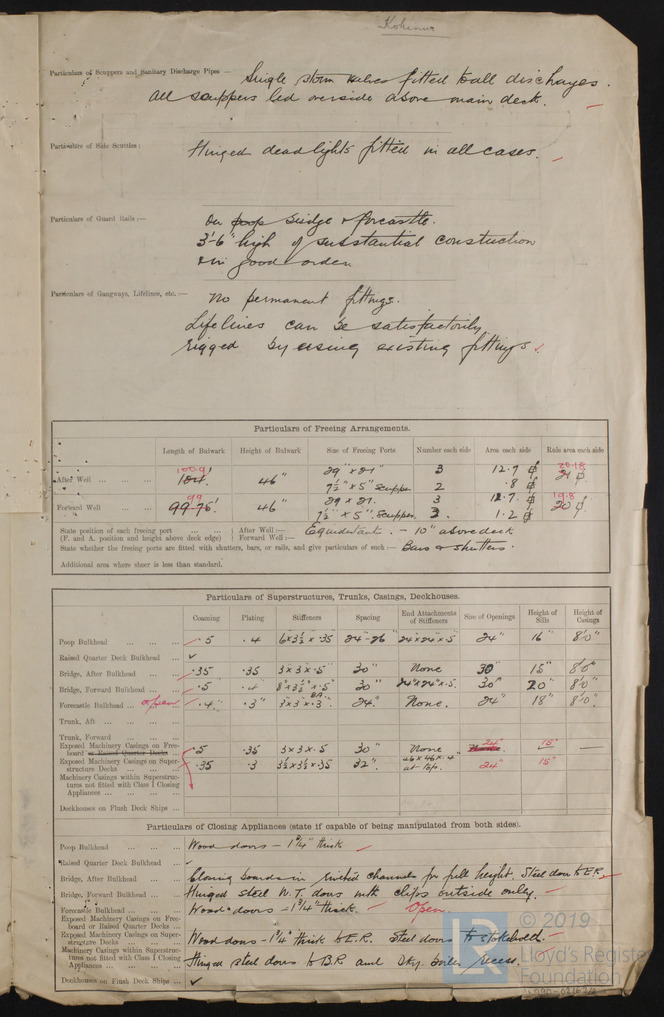 Kohinur
Particulars of Scuppers and Sanitary Discharge Pipes — Single storm valves fitted to all discharges.
All scuppers led overside above main deck.
Particulars of Side Scuttles: Hinged deadlights fitted in all cases.
Particulars of Guard Rails:— On poop bridge & forcastle.
3'-6" high of substantial construction
& in good order
Particulars of Gangways, Lifelines, etc.— No permanent fittings.
Lifelines can be satisfactorily
rigged by using existing fittings.
Particulars of Freeing Arrangements.
Length of Bulwark Height of Bulwark Size of Freeing Ports Number each side Area each side Rule area each side
100.91 20.18
After Well 104' 46" 29" x 21" 3 12.7 21
7½" x 5" Scupper 2 .8
99 19.8
Forward Well 99.75' 46" 29 x 21. 3 12.7 20
7½" x 5". Scupper 3. 1.2
State position of each freeing port After Well:— Equidistant. - 10" above deck
(F. and A. position and height above deck edge) Forward Well:—
State whether the freeing ports are fitted with shutters, bars, or rails, and give particulars of such:— Bars & shutters.
Additional area where sheer is less than standard.
Particulars of Superstructures, Trunks, Casings, Deckhouses.
Coaming Plating Stiffeners Spacing End Attachments of Stiffeners Size of Openings Height of Sills Height of Casings
Poop Bulkhead .5 .4 6 x 3½ x .35 24"-26" 24 x 24 x .5 24" 16" 8'0"
Raised Quarter Deck Bulkhead
Bridge, After Bulkhead .35 .35 3 x 3 x .5 30" None 30" 15" 8'0"
Bridge, Forward Bulkhead .5 .4 8" x 3½" x .5 30" 24" x 24" x .5. 30" 20" 8'0"
Forecastle Bulkhead open .4" .3" 3 x 3 x .3 BA 24" None. 24" 18" 8'0".
Trunk, Aft
Trunk, Forward
Exposed Machinery Casings on Freeboard or Raised Quarter Decks .5 .35 3 x 3 x .5 30" None 24" 15"
Exposed Machinery Casings on Superstructure Decks .35 .3 3½ x 3½ x .35 32". 46 x 46 x .4 at top. 24" 15"
Machinery Casings within Superstructures not fitted with Class I Closing Appliances
Deckhouses on Flush Deck Ships
Particulars of Closing Appliances (state if capable of being manipulated from both sides).
Poop Bulkhead Wood doors - 1¾" thick
Raised Quarter Deck Bulkhead
Bridge, After Bulkhead Closing boards in rivited channels for full height. Steel door to E.R.
Bridge, Forward Bulkhead Hinged steel W.T. doors with clips outside only.
Forecastle Bulkhead Wood doors - 1¾" thick. Open
Exposed Machinery Casings on Freeboard or Raised Quarter Decks
Exposed Machinery Casings on Superstructure Decks Wood doors - 1¾" thick to E.R. Steel doors to stokehold.
Machinery Casings within Superstructures not fitted with Class I Closing Appliances Hinged steel doors to B.R. and Dky. boiler recess.
Deckhouses on Flush Deck Ships
© 2019
Lloyd's Register
Foundation